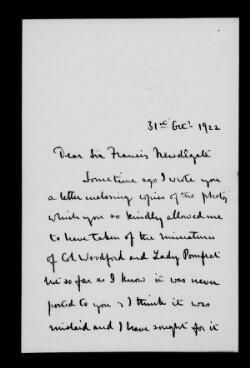 31st Oct. 1922
Dear Sir Francis Newdigate
Sometime ago I wrote you
a letter enclosing copies of the photos
which you so kindly allowed me
to have taken of the miniatures
of Col Woodford and Lady Pomfret
but so far as I know it was never
posted to you & I think it was
mislaid and I have sought for it